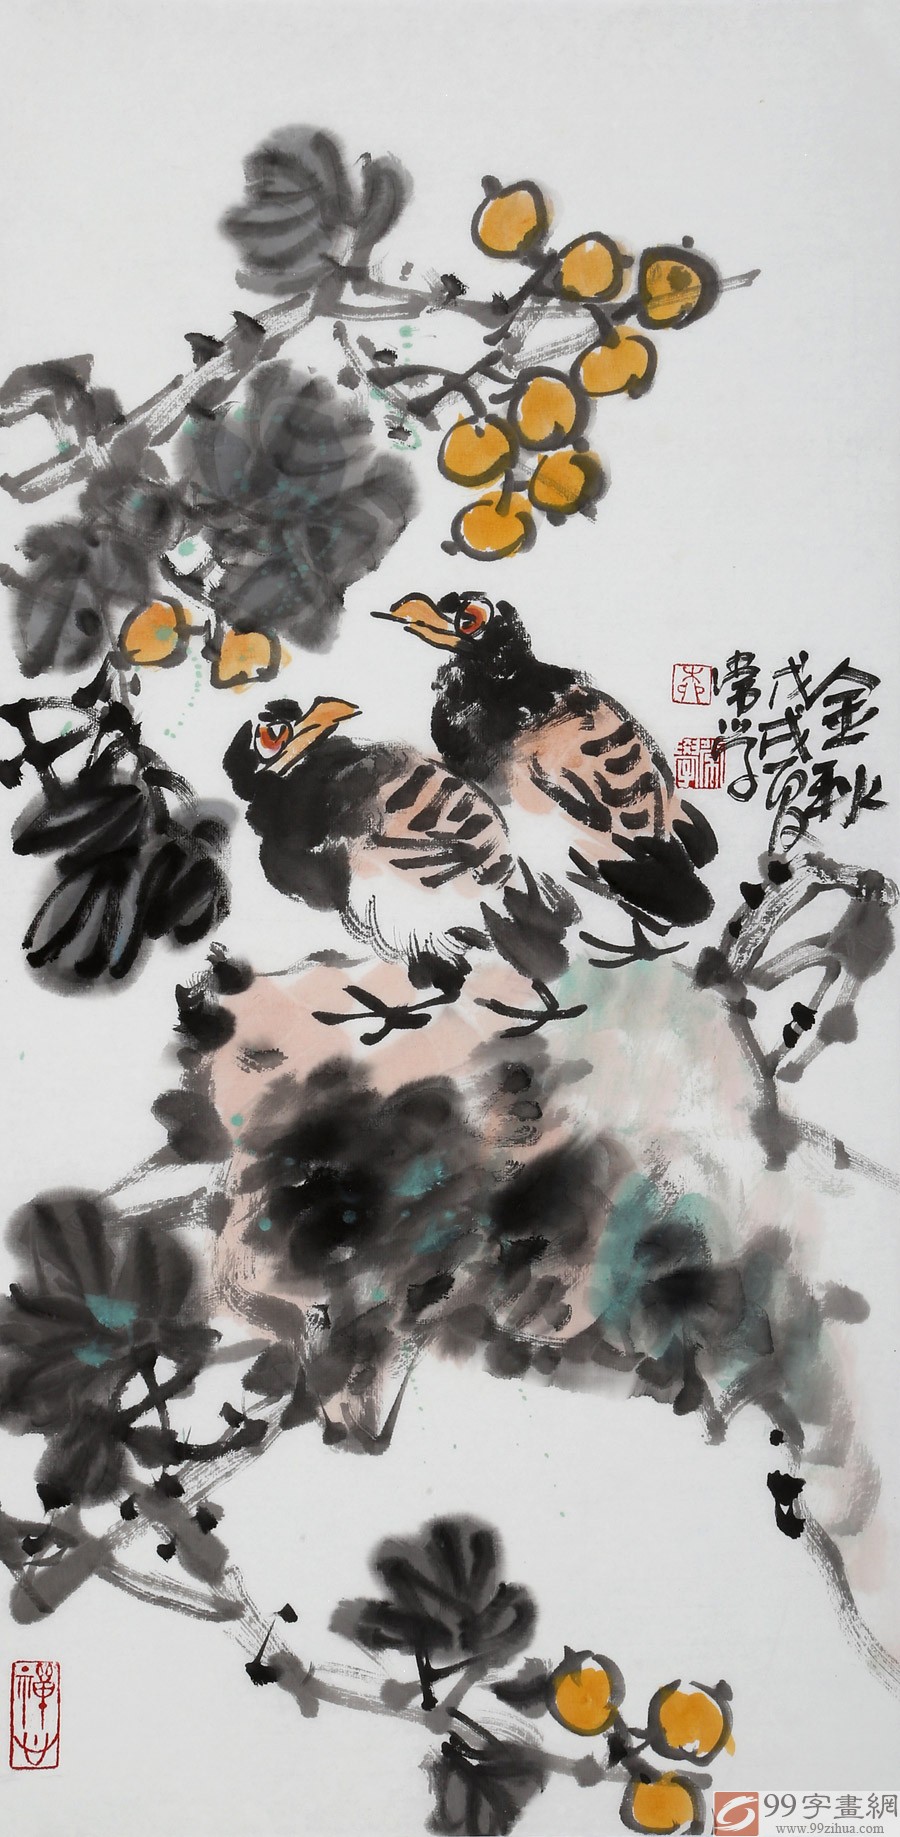 金秋
戊戌夏
常学
禅世
99字畫網
www.99zihua.com